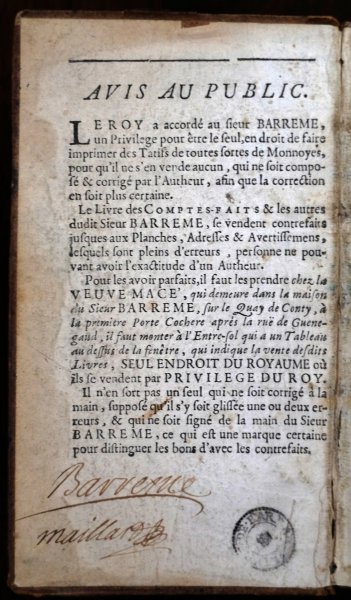 AVIS AU PUBLIC.
LE ROY a accordé au sieur BARREME,
un Privilege pour être le seul, en droit de faire
imprimer des Tarifs de toutes sortes de Monnoyes,
pour qu'il ne s'en vende aucun, qui ne soit compo-
sé & corrigé par l'Autheur, afin que la correction
en soit plus certaine.
Le Livre des COMPTES-FAITS & les autres
dudit Sieur BARREME, se vendent contrefaits
jusques aux Planches, Adresses & Avertissemens,
lesquels sont pleins d'erreurs, personne ne pou-
vant avoir l'exactitude d'un Autheur.
Pour les avoir parfaits, il faut les prendre chez la
VEUVE MACE', qui demeure dans la maison
du Sieur BARREME, sur le Quay de Conty, à
la première Porte Cochere aprés la ruë de Guene-
gaud, il faut monter à l'Entre-sol qui a un Tableau
au dessus de la fenêtre, qui indique la vente desdits
Livres, SEUL ENDROIT DU ROYAUME où
ils se vendent par PRIVILEGE DU ROY.
Il n'en sort pas un seul qui ne soit corrigé à la
main, supposé qu'il s'y soit glissée une ou deux er-
reurs, & qui ne soit signé de la main du Sieur
BARREME, ce qui est une marque certaine
pour distinguer les bons d'avec les contrefaits.
Barreme
maillard